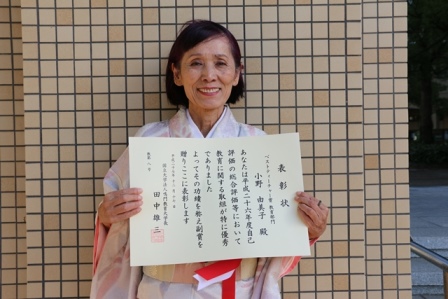 表彰状
ベストティーチャー賞 教育部門
小野 由美子 殿
あなたは平成二十六年度自己
評価の総合評価等において
教育に関する取組が特に優秀
でありました
よってその功績を称え副賞を
贈りここに表彰します
田中 雄三